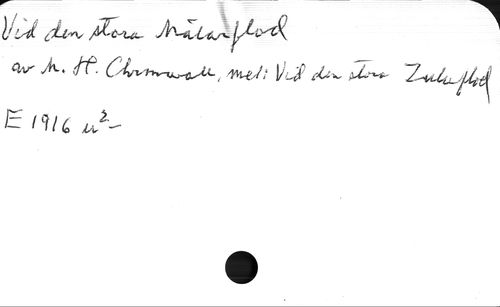 Vid den stora Mälarflod
av M. H. Chronwall, mel: Vid den stora Zulaflod
E 1916 u²-